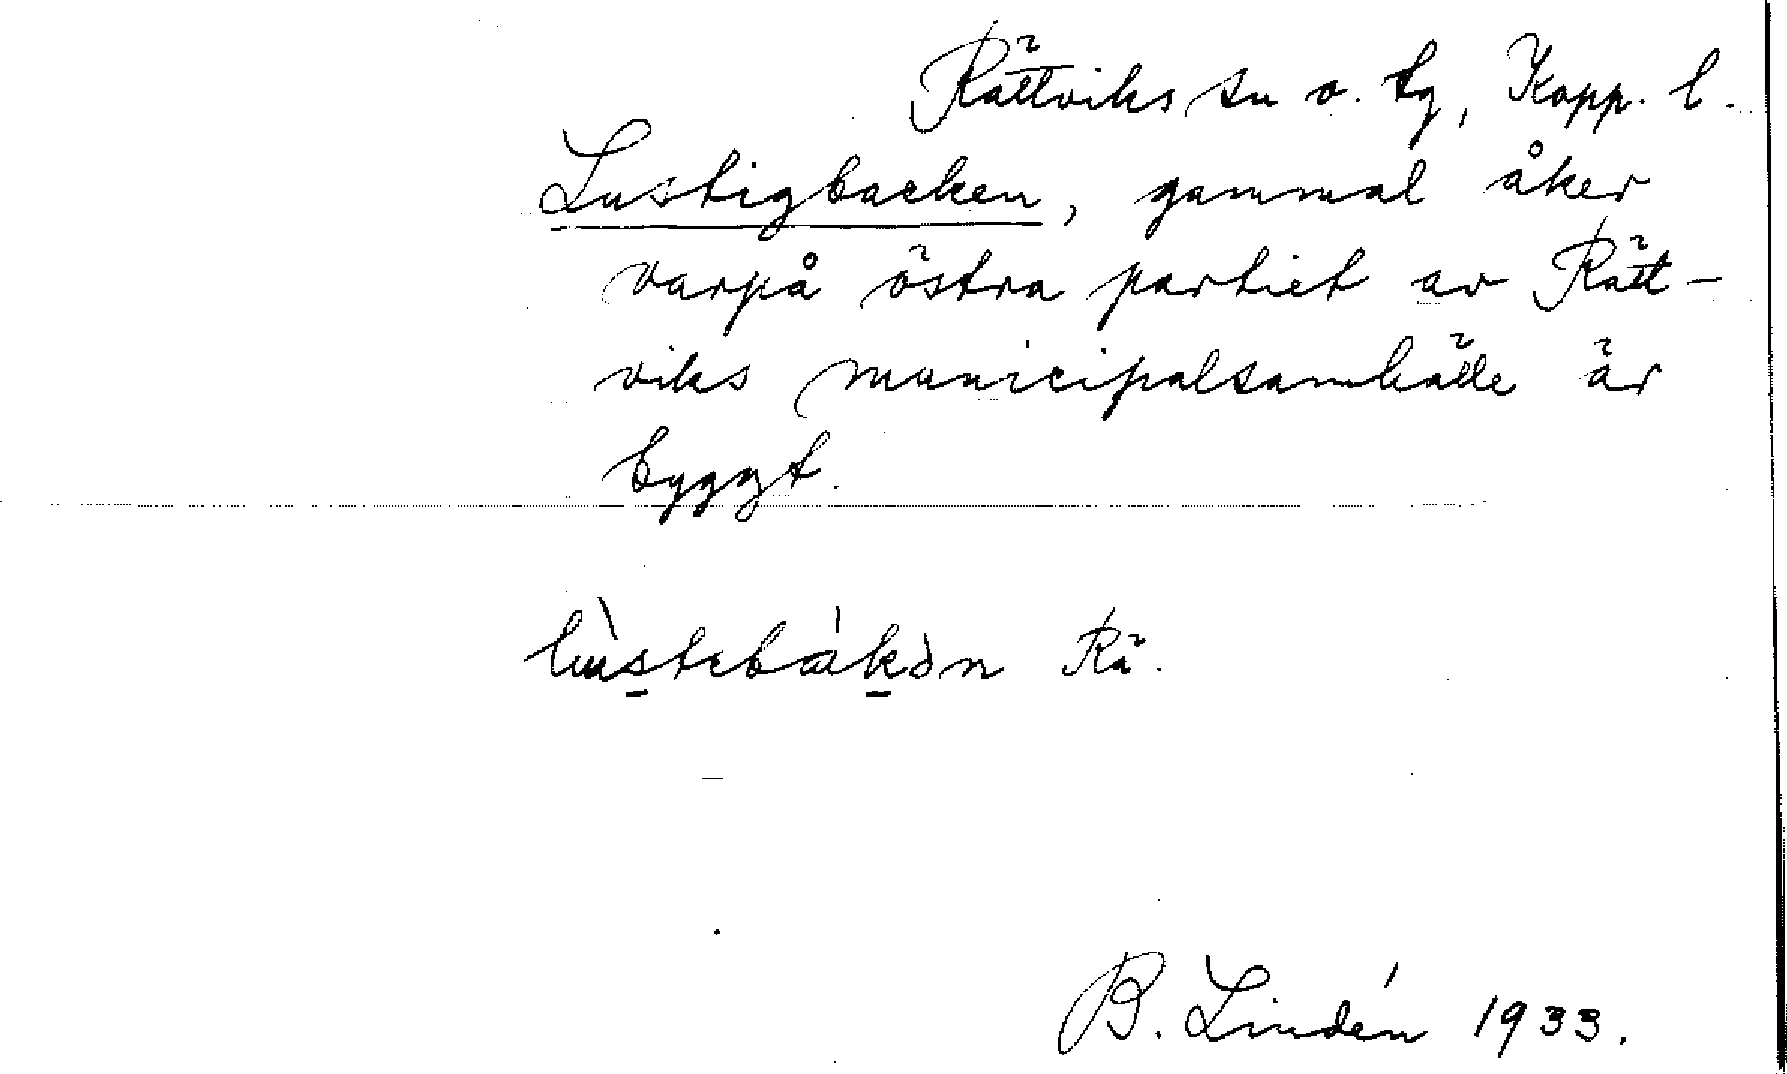 Rättviks sn o. tg, Kopp. l.
Lustigbacken, gammal åker
varpå östra partiet av Rätt-
viks municipalsamhälle är
byggt.
Rä.
B. Lindén 1933.